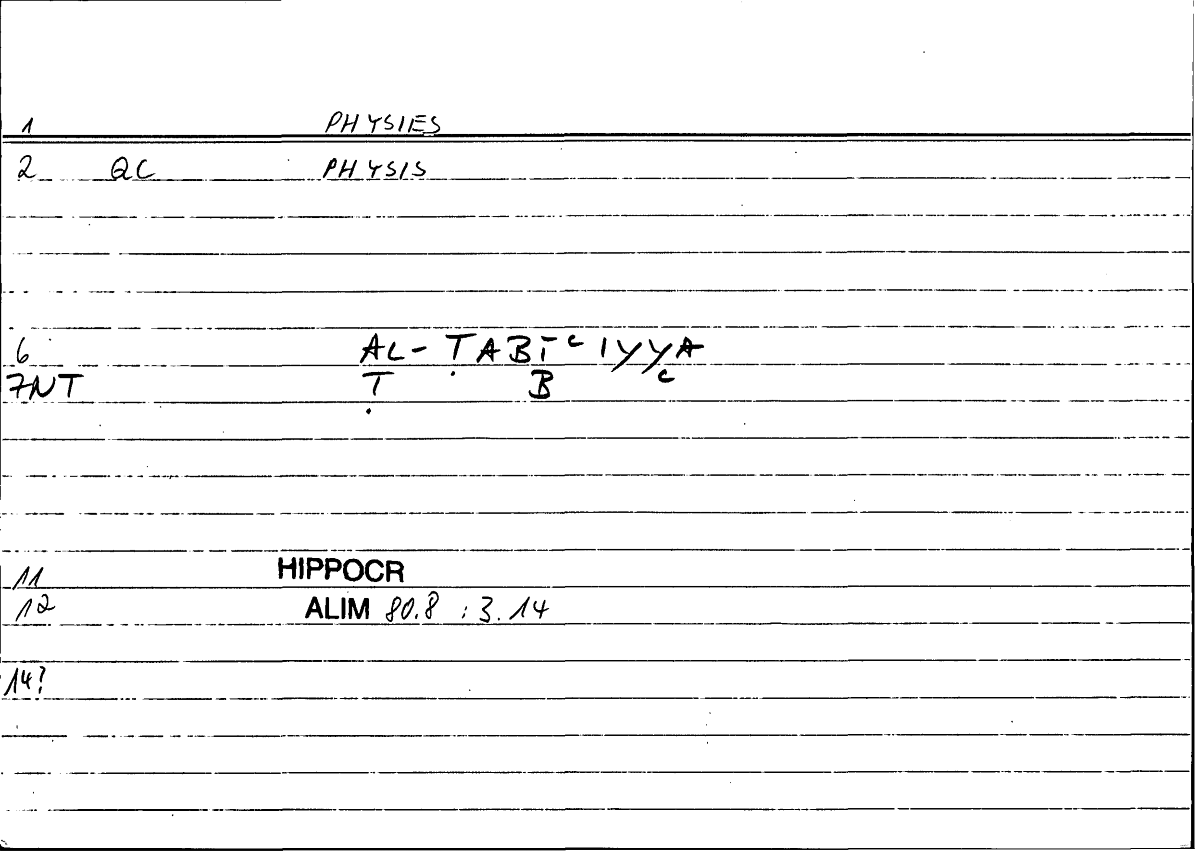 1 PHYSIES
2 QC PHYSIS
6 AL-ṬABĪʿIYYA
7NT Ṭ B ʿ
11 HIPPOCR
12 ALIM 80.8 : 3.14
14?